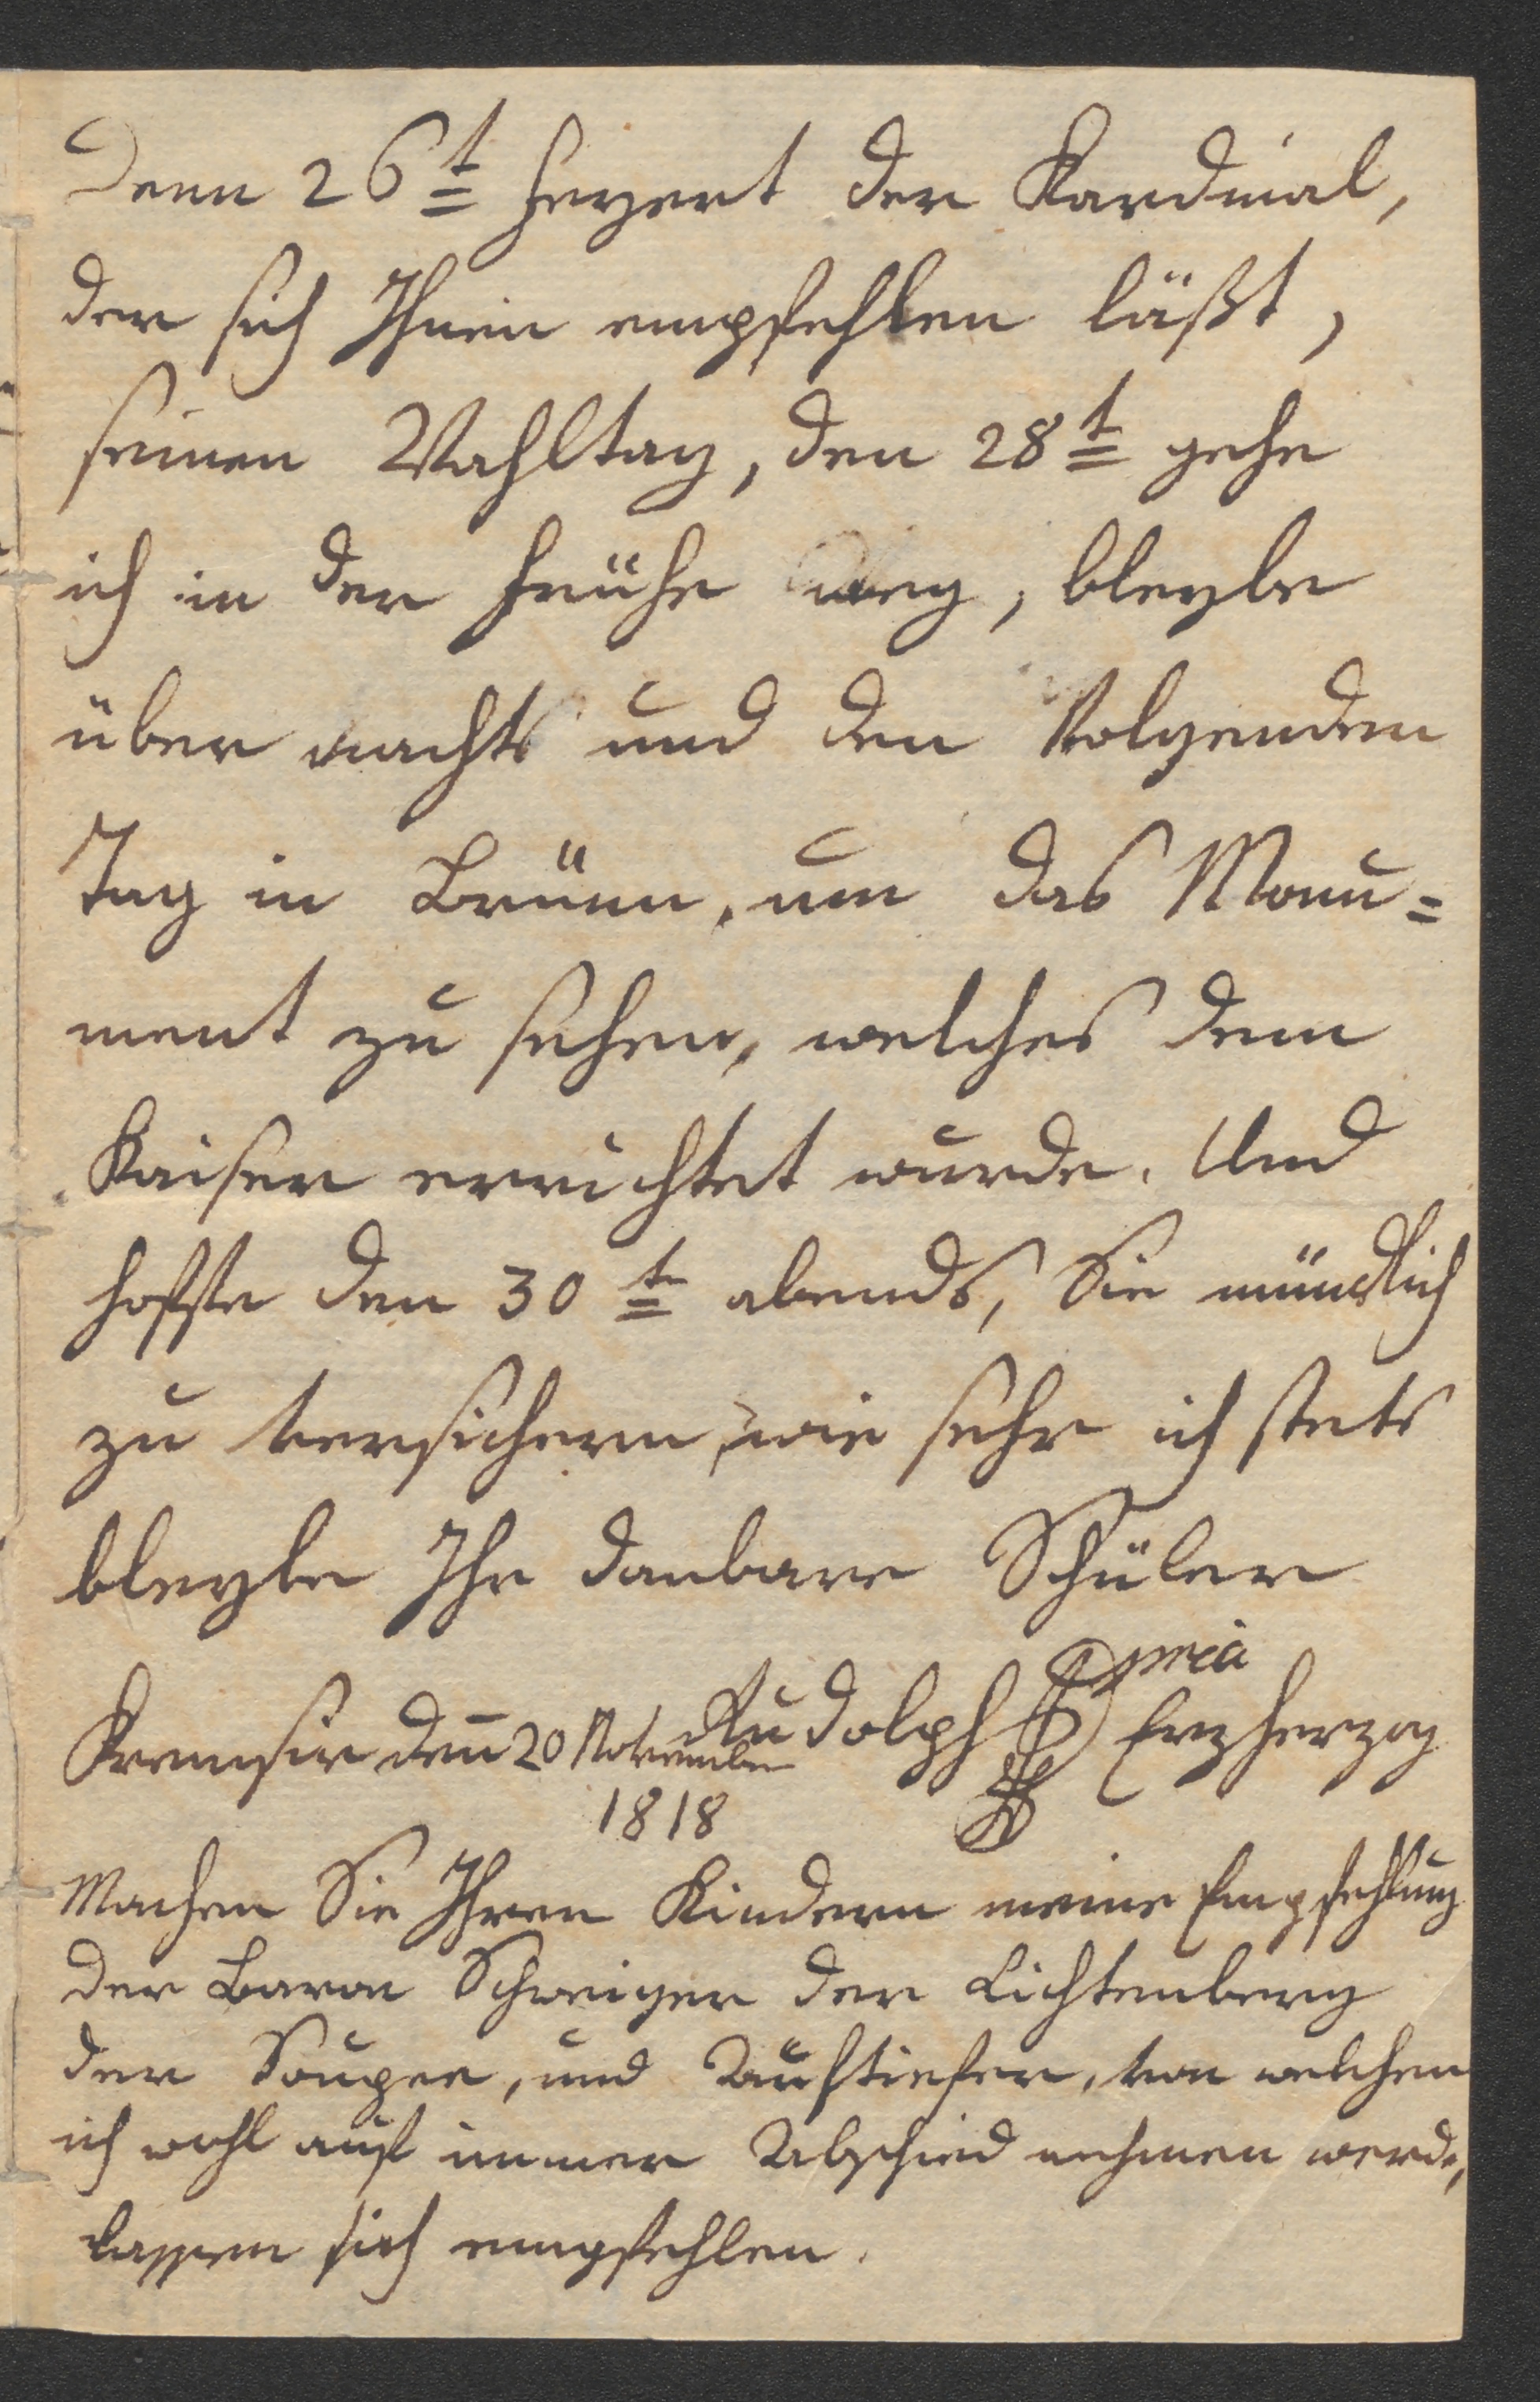 Denn 26t feyert der Kardinal,
der sich Ihnen empfehlen läßt,
seinen Wahltag, den 28t gehe
ich in der Frühe weg, bleybe
über nachts und den Volgenden
Tag in Brünn, um das Monu=
ment zu sehen, welches dem
Kaiser errichtet wurde. Und
hoffe den 30t abends, Sie mündlich
zu versichern, wie sehr ich stets
bleybe Ihr danbarer Schüler
Rudolph mpria Erzherzog
Kremsir den̄ 20 November
1818
Machen Sie Ihren Kindern meine Empfehlung
der Baron Schweiger der Lichtenberg
der Soupee, und von welchen
ich wohl auf immer Abschied nehmen werde,
lassen sich empfehlen.